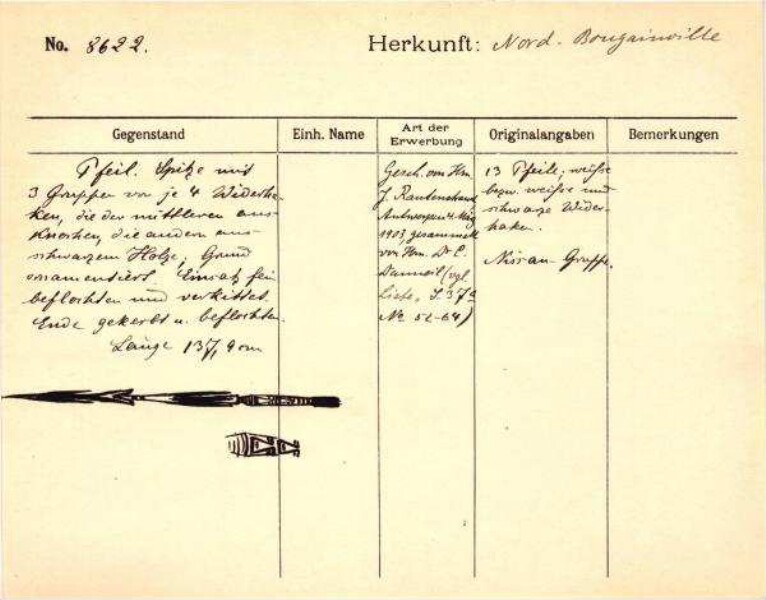 No. 8622.
Herkunft: Nord. Bougainville
Gegenstand
Einh. Name
Art der Erwerbung
Originalangaben
Bemerkungen
Pfeil. Spitze mit
3 Gruppen von je 4 Widerha-
ken, die der mittleren aus
Knochen, die andern aus
schwarzem Holze; Grund
ornamentiert. Einsatz fein
beflochten und verkittet.
Ende gekerbt u. beflochten.
Länge 137,9 cm
Gesch. von Hrn.
J. Rautenstrauch
Antwerpen 4. Mrz
1903, gesammelt
von Hrn. Dr E.
Danneil (vgl.
Liste, S. 37a
No 52-64)
13 Pfeile; weisse
bezw. weisse und
schwarze Wider-
haken.
Nissan-Gruppe.